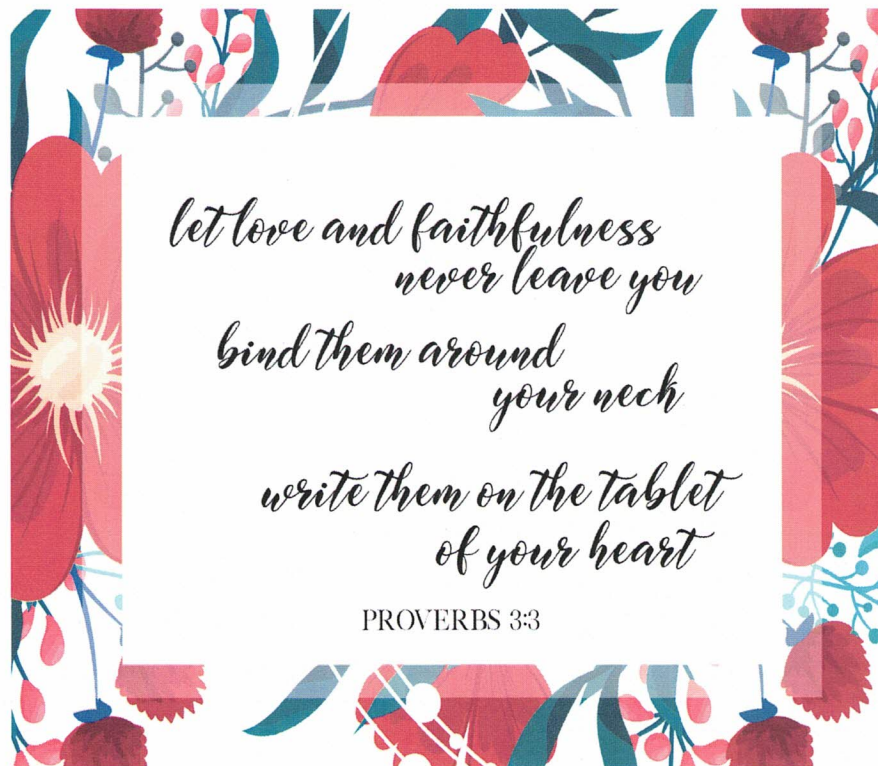 let love and faithfulness
never leave you
bind them around
your neck
write them on the tablet
of your heart
PROVERBS 3:3